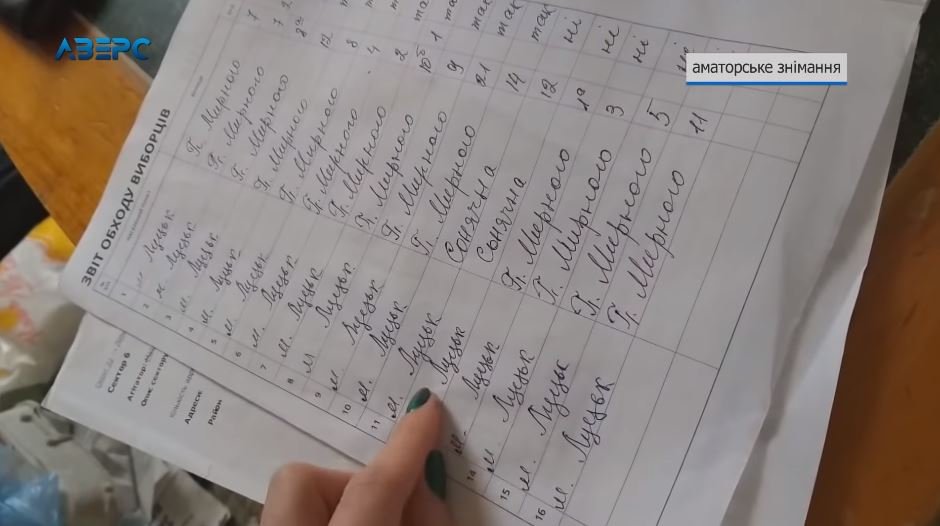 АВЕРС
аматорське знімання
ЗВІТ ОБХОДУ ВИБОРЦІВ
1 м. Луцьк П. Мирного 7
2 м. Луцьк П. Мирного 7
3 м. Луцьк П. Мирного 8а
4 м. Луцьк П. Мирного 12
5 м. Луцьк П. Мирного 8
6 м. Луцьк П. Мирного 4
7 м. Луцьк П. Мирного 2
8 м. Луцьк П. Мирного 10б 1 так
9 м. Луцьк П. Мирного 9 так
10 м. Луцьк П. Мирного 21 так
11 м. Луцьк Сонячна 14 так
Луцьк Сонячна 12 ні
Луцьк П. Мирного 1а ні
14 м. Луцьк П. Мирного 3 ні
15 м. Луцьк П. Мирного 5
16 м. Луцьк П. Мирного 11
Сектор 6
Опис сектору
Адреси
Район